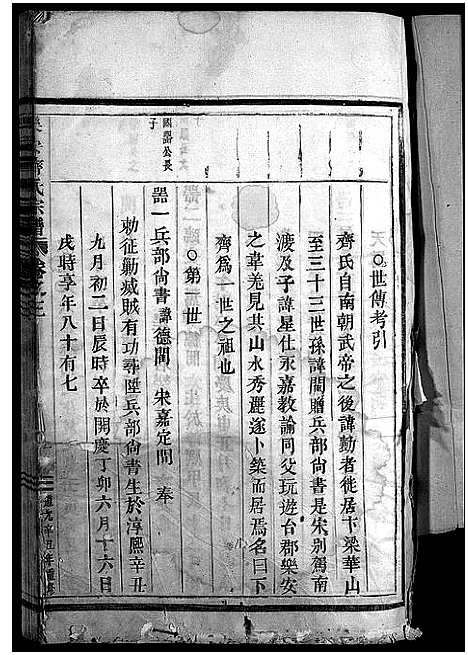 ○世傳考引
齊氏自南朝武帝之後諱勳者徙居卞梁華山
至三十三世孫諱閶贈兵部尚書是宋別駕南
渡及子諱星仕永嘉教諭同父玩遊台郡樂安
之葦羌見其山水秀麗遂卜築而居焉名曰下
齊為一世之祖也
○第一世
國器公長
子
器一兵部尚書諱德閏 宋嘉定間 奉
勅征勦滅賊有功尋陞兵部尚書生於淳熙辛丑
九月初二日辰時卒於開慶丁卯六月十六日
戌時享年八十有七
齊氏宗譜